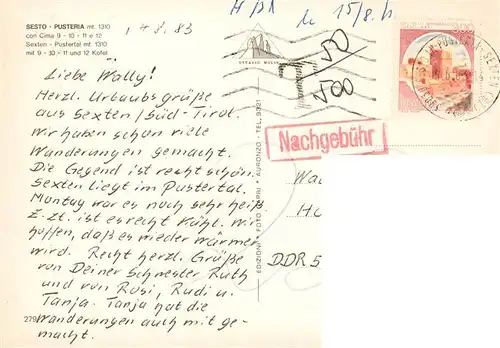 SESTO - PUSTERIA mt. 1310
con Cima 9 - 10 - 11 e 12
Sexten - Pustertal mt. 1310
mit 9 - 10 - 11 und 12 Kofel
14.8.83
15/8.
T 50
500
Nachgebühr
Liebe Wally!
Herzl. Urlaubsgrüße
aus Sexten/Süd-Tirol.
Wir haben schon viele
Wanderungen gemacht.
Die Gegend ist recht schön.
Sexten liegt im Pustertal.
Montag war es noch sehr heiß.
Z. Zt. ist es recht kühl. Wir
hoffen, daß es wieder wärmer
wird. Recht herzl. Grüße
von Deiner Schwester Ruth
und von Rosi, Rudi u.
Tanja. Tanja hat die
Wanderungen auch mit ge-
macht.
279
EDIZIONI FOTO - AURONZO - TEL. 9721
Wa
H
DDR 5